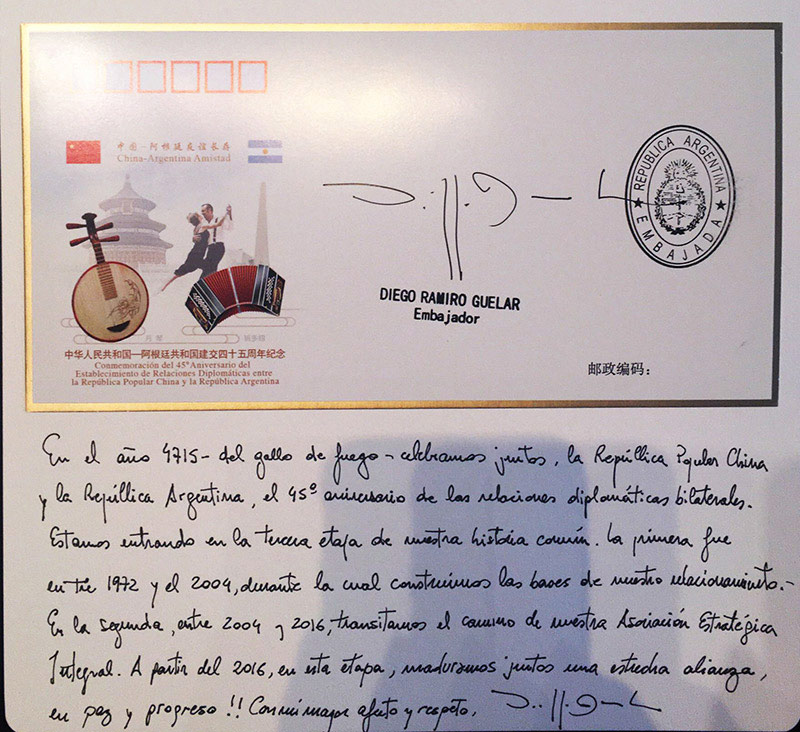 中国—阿根廷友谊长存
China-Argentina Amistad
REPUBLICA ARGENTINA
EMBAJADA
DIEGO RAMIRO GUELAR
Embajador
月琴
中华人民共和国—阿根廷共和国建交四十五周年纪念
Conmemoración del 45º Aniversario del
Establecimiento de Relaciones Diplomáticas entre
la República Popular China y la República Argentina
邮政编码：
En el año 4715- del gallo de fuego - celebramos juntos, la República Popular China
y la República Argentina, el 45º aniversario de las relaciones diplomáticas bilaterales.
Estamos entrando en la tercera etapa de nuestra historia común. La primera fue
entre 1972 y el 2004, durante la cual construimos las bases de nuestro relacionamiento.-
En la segunda, entre 2004 y 2016, transitamos el camino de nuestra Asociación Estratégica
Integral. A partir del 2016, en esta etapa, maduramos juntos una estrecha alianza,
en paz y progreso!! Con mi mayor afecto y respeto.